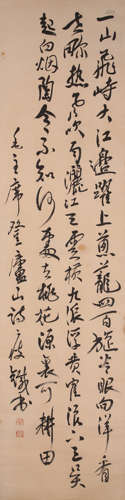 一山飛峙大江邊躍上葱蘢四百旋冷眼向洋看
世界熱風吹雨灑江天雲橫九派浮黃鶴浪下三吳
起白烟陶令不知何處去桃花源裏可耕田
毛主席登廬山詩